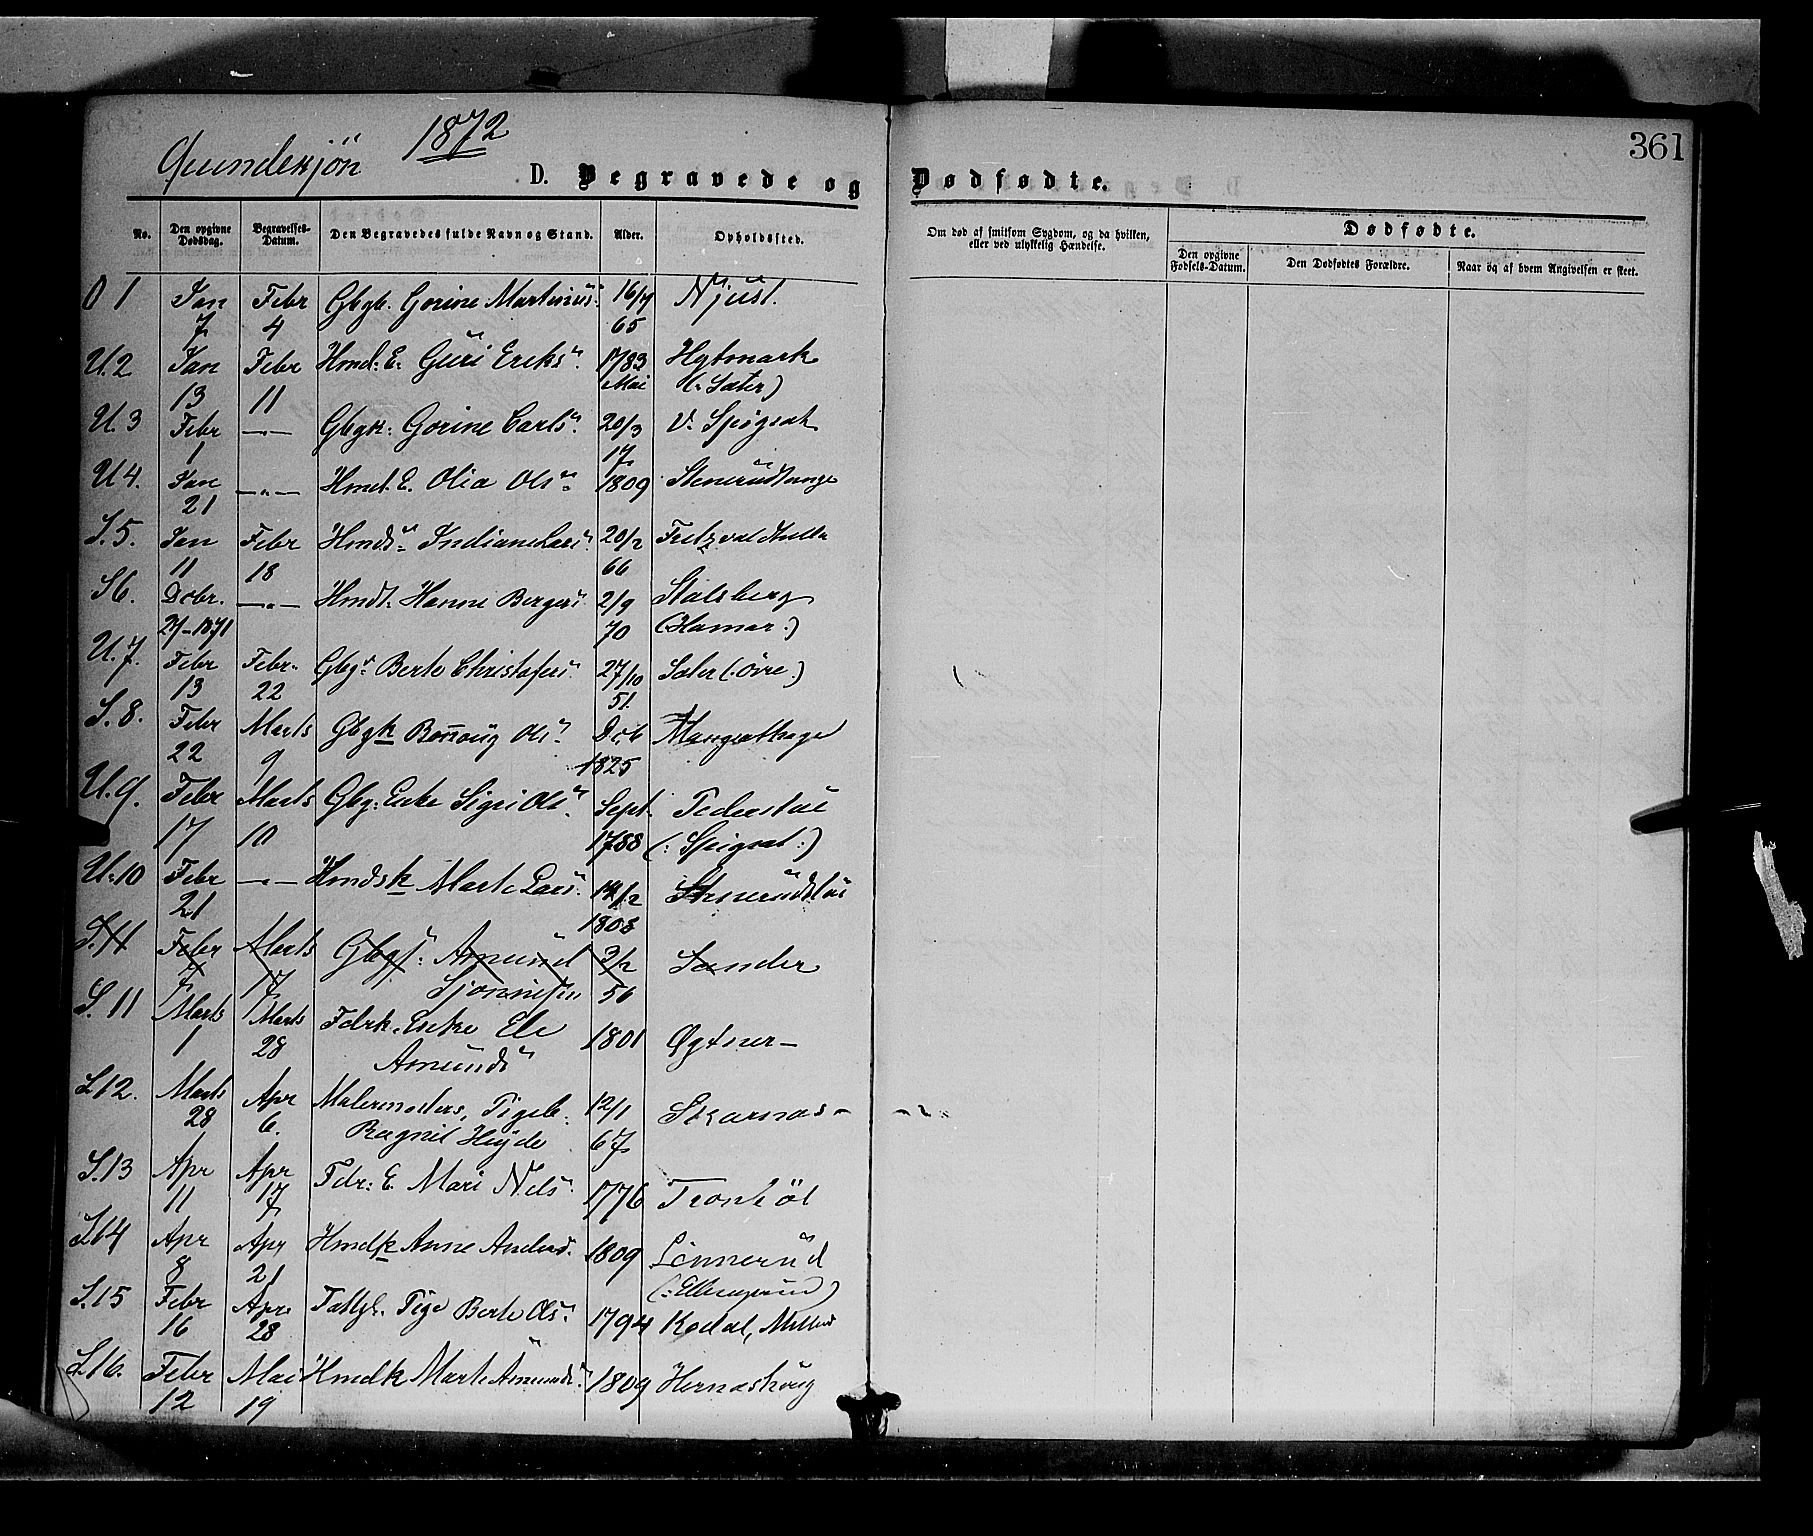 1872
361
Qvindekjön
D. Begravede og Dødfødte.
No. Den opgivne Dødsdag. Begravelses-Datum. Den Begravedes fulde Navn og Stand. Alder. Opholdssted.
Om død af smitsom Sygdom, og da hvilken, eller ved ulykkelig Hændelse.
Dødfødte.
Den opgivne Fødsels-Datum. Den Dødfødtes Forældre. Naar og af hvem Angivelsen er skeet.
1 Jan Febr Gbgb. Gorine Martinus: 16/4 Njust.
7 4 65
U.2 Jan Febr Hmd: E. Guri Eriks: 1783 Hytmark
13 11 Mai (: Sæter)
U.3 Febr —"— Gbgk: Gorine Carls: 20/3 V. Spigset
1 17
U4. Jan —"— Hmd. E. Olia Ols: 1809 Stenerudtange
21
S.5. Jan Febr Hmds: Indiane Lars: 20/2
11 18 66
S6. Dcbr. —"— Hmdt: Hanne Bergers: 2/9 Stalsberg
27-1871 70 (Hamar.)
U.7. Febr Febr. Gbg: Berte Christofers: 27/10 Sæter (: övre.)
13 22 51.
S.8. Febr Marts Gbgk Ols: Dcb
22 9 1825
U.9. Febr Marts Gbg: Enke Sigri Ols: Sept. Pederstue
17 10 1788 (: Spigset:)
U.10 Febr —"— Hmdsk Marte Lars: 14/2 Stenerudstue
21 1808
S.11 Febr Marts Gbgs: Amund 3/2 Sander
7 17 Sjönnesen 56
S. 11 Marts Marts Fdrk. Enke Ele 1801 Øgtner—
1 28 Amunds:
S.12. Marts Apr Malermesters, Pigeb. 12/1 Skarnæs-
28 6. Ragnil Heyde 67
S.13 Apr Apr Fdr: E. Mari Nels: 1776 Tronböl
11 17
S.14 Apr Apr Hmdk Anne Anders. 1809 Lönnerud
8 21
S.15 Febr Apr Fattgl. Pige Berte Ols: 1794 Kodal,
16 28
S.16. Febr Mai Hmdk Marte Amunds: 1809 Hernæshoug
12 19